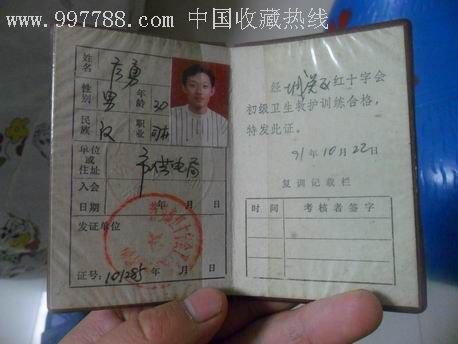 www.997788.com 中国收藏热线
姓名 彦勇
性别 男 年龄 20
民族 汉 职业 司机
单位或住址 市供电局
入会日期 年 月 日
发证单位
证号: 101285 年 月 日
经 红十字会
初级卫生救护训练合格,
特发此证。
91年10月22日
复训记载栏
时间 考核者签字